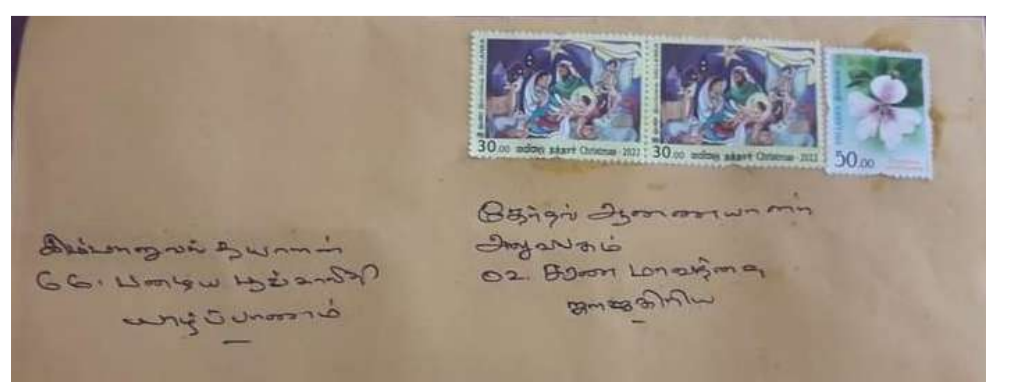 30.00 නත්තල நத்தார் Christmas - 2022
30.00 නත්තල நத்தார் Christmas - 2022
50.00
தேர்தல் ஆணையாளர்
அலுவலகம்
02. சரண மாவத்தை
ராஜகிரிய
இம்மானுவல் தயாளன்
66. பண்டிய பூங்காவீதி
யாழ்ப்பாணம்